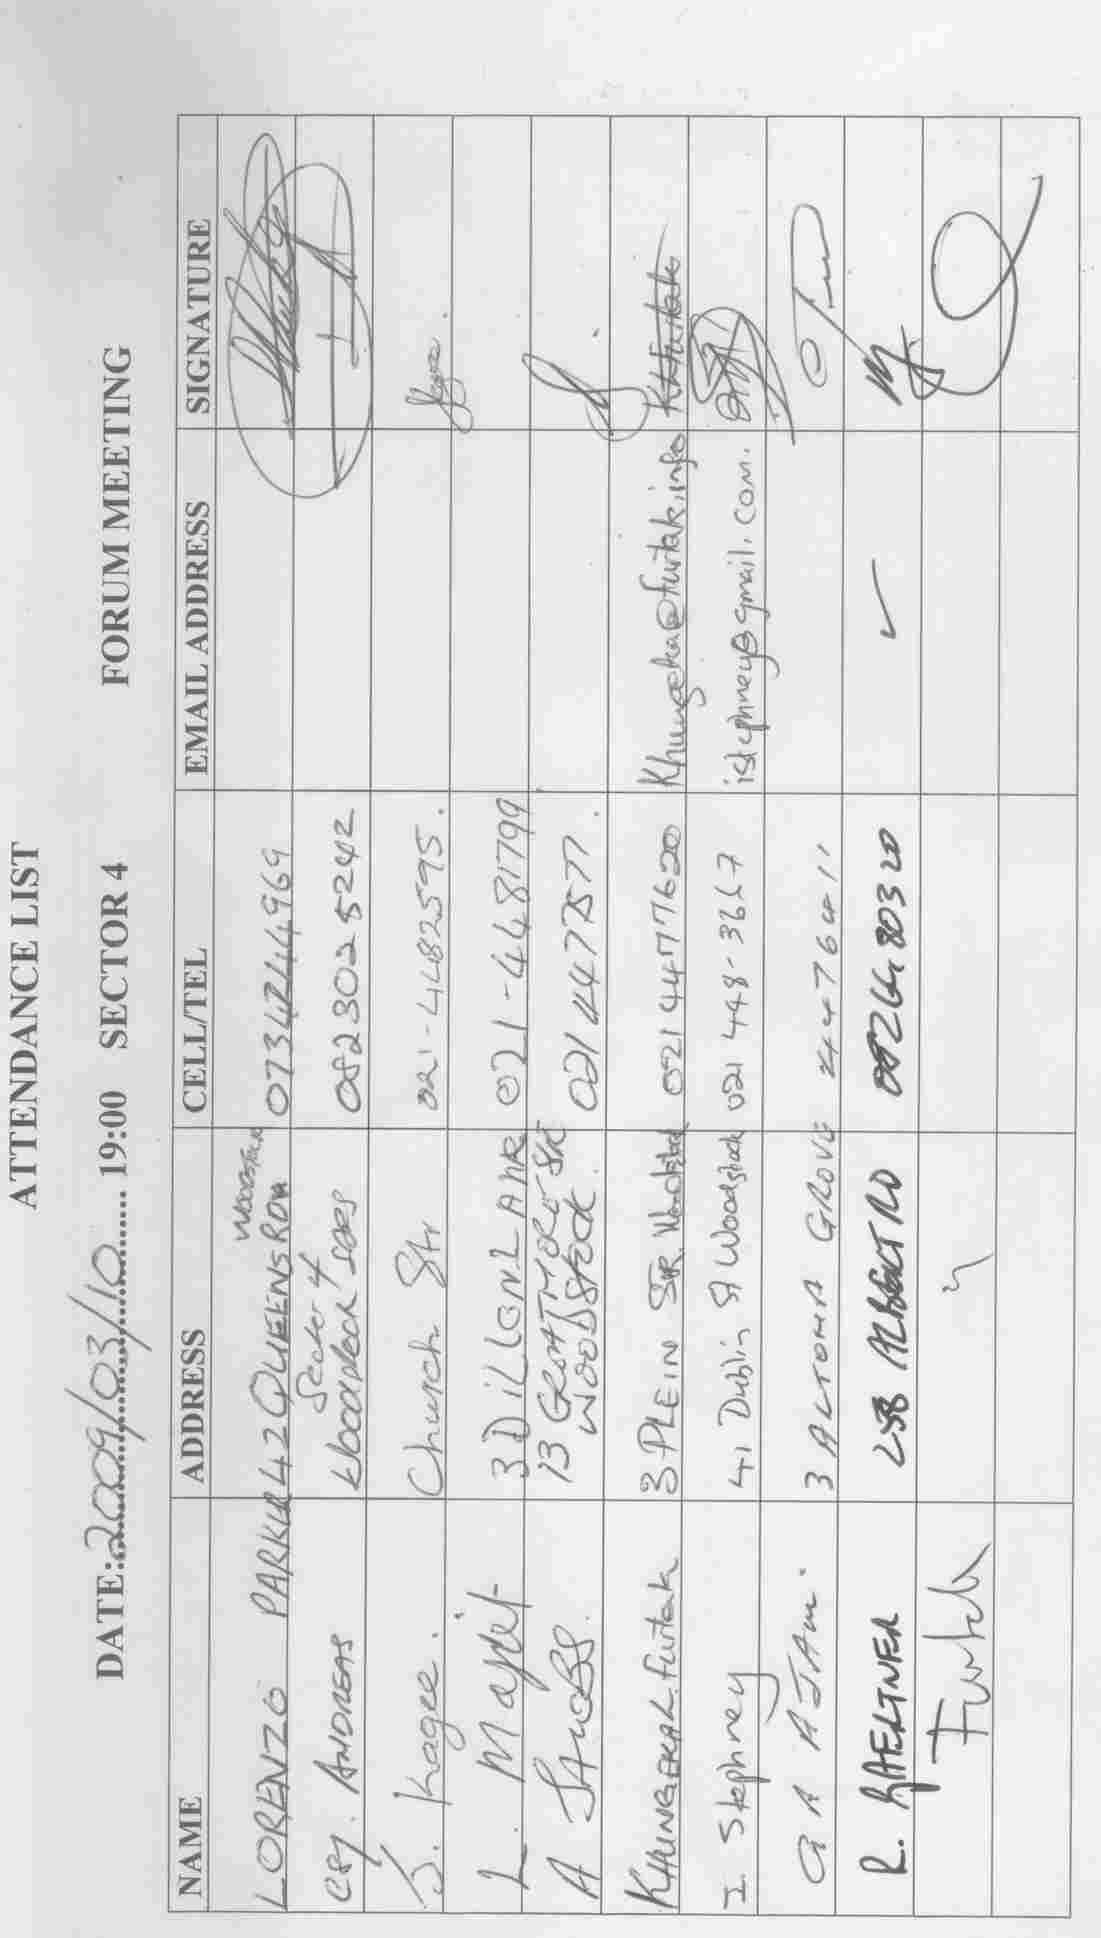 ATTENDANCE LIST
DATE: 2009/03/10 19:00 SECTOR 4 FORUM MEETING
NAME ADDRESS CELL/TEL EMAIL ADDRESS SIGNATURE
LORENZO PARKER 42 QUEENS RDW WOODSTOCK 0734244969
csy. ANDREAS Sector 4 Woodstock SAPS 0823025242
S. Kagee. Church Str 021-4482595.
L. Majiet 3 DILLON LANE 021-4481799
A JACOBS. 13 GREATMORE STR WOODSTOCK 021 4477577.
KHUNGEKA L. Furtak 3 PLEIN STR. Woodstock 021 4477620 Khungeka@furtak.info
I. Stephney 41 Dublin St Woodstock 021 448-3667 istephney@gmail.com.
G A AJAM. 3 ALTONA GROVE 4476411
R. 258 ALBERT RD 0826480320 ✓
Furtak